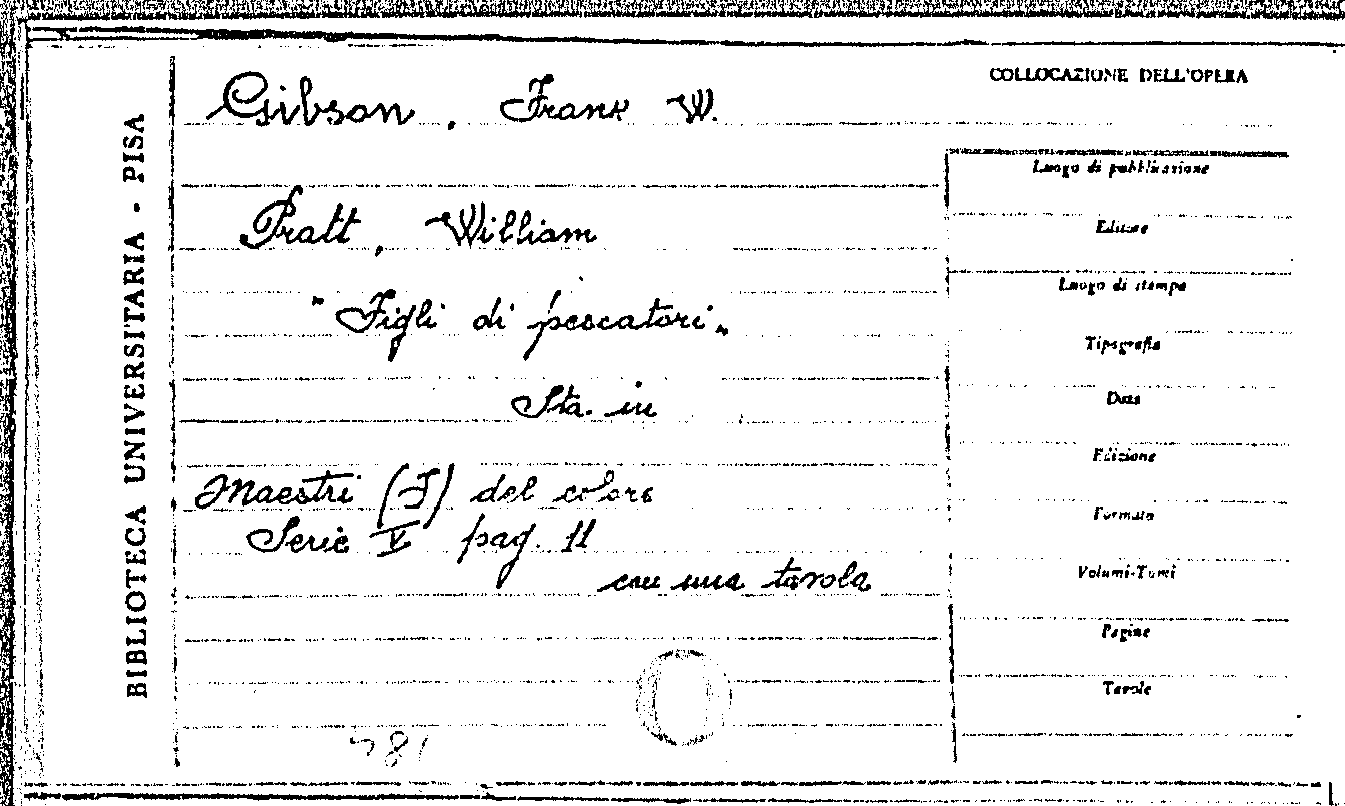 BIBLIOTECA UNIVERSITARIA - PISA
COLLOCAZIONE DELL'OPERA
Gibson, Frank W.
Pratt, William
"Figli di pescatori"
Sta in
Maestri (I) del colore
Serie V pag. 11
con una tavola
581
Luogo di pubblicazione
Editore
Luogo di stampa
Tipografia
Data
Edizione
Formato
Volumi-Tomi
Pagine
Tavole